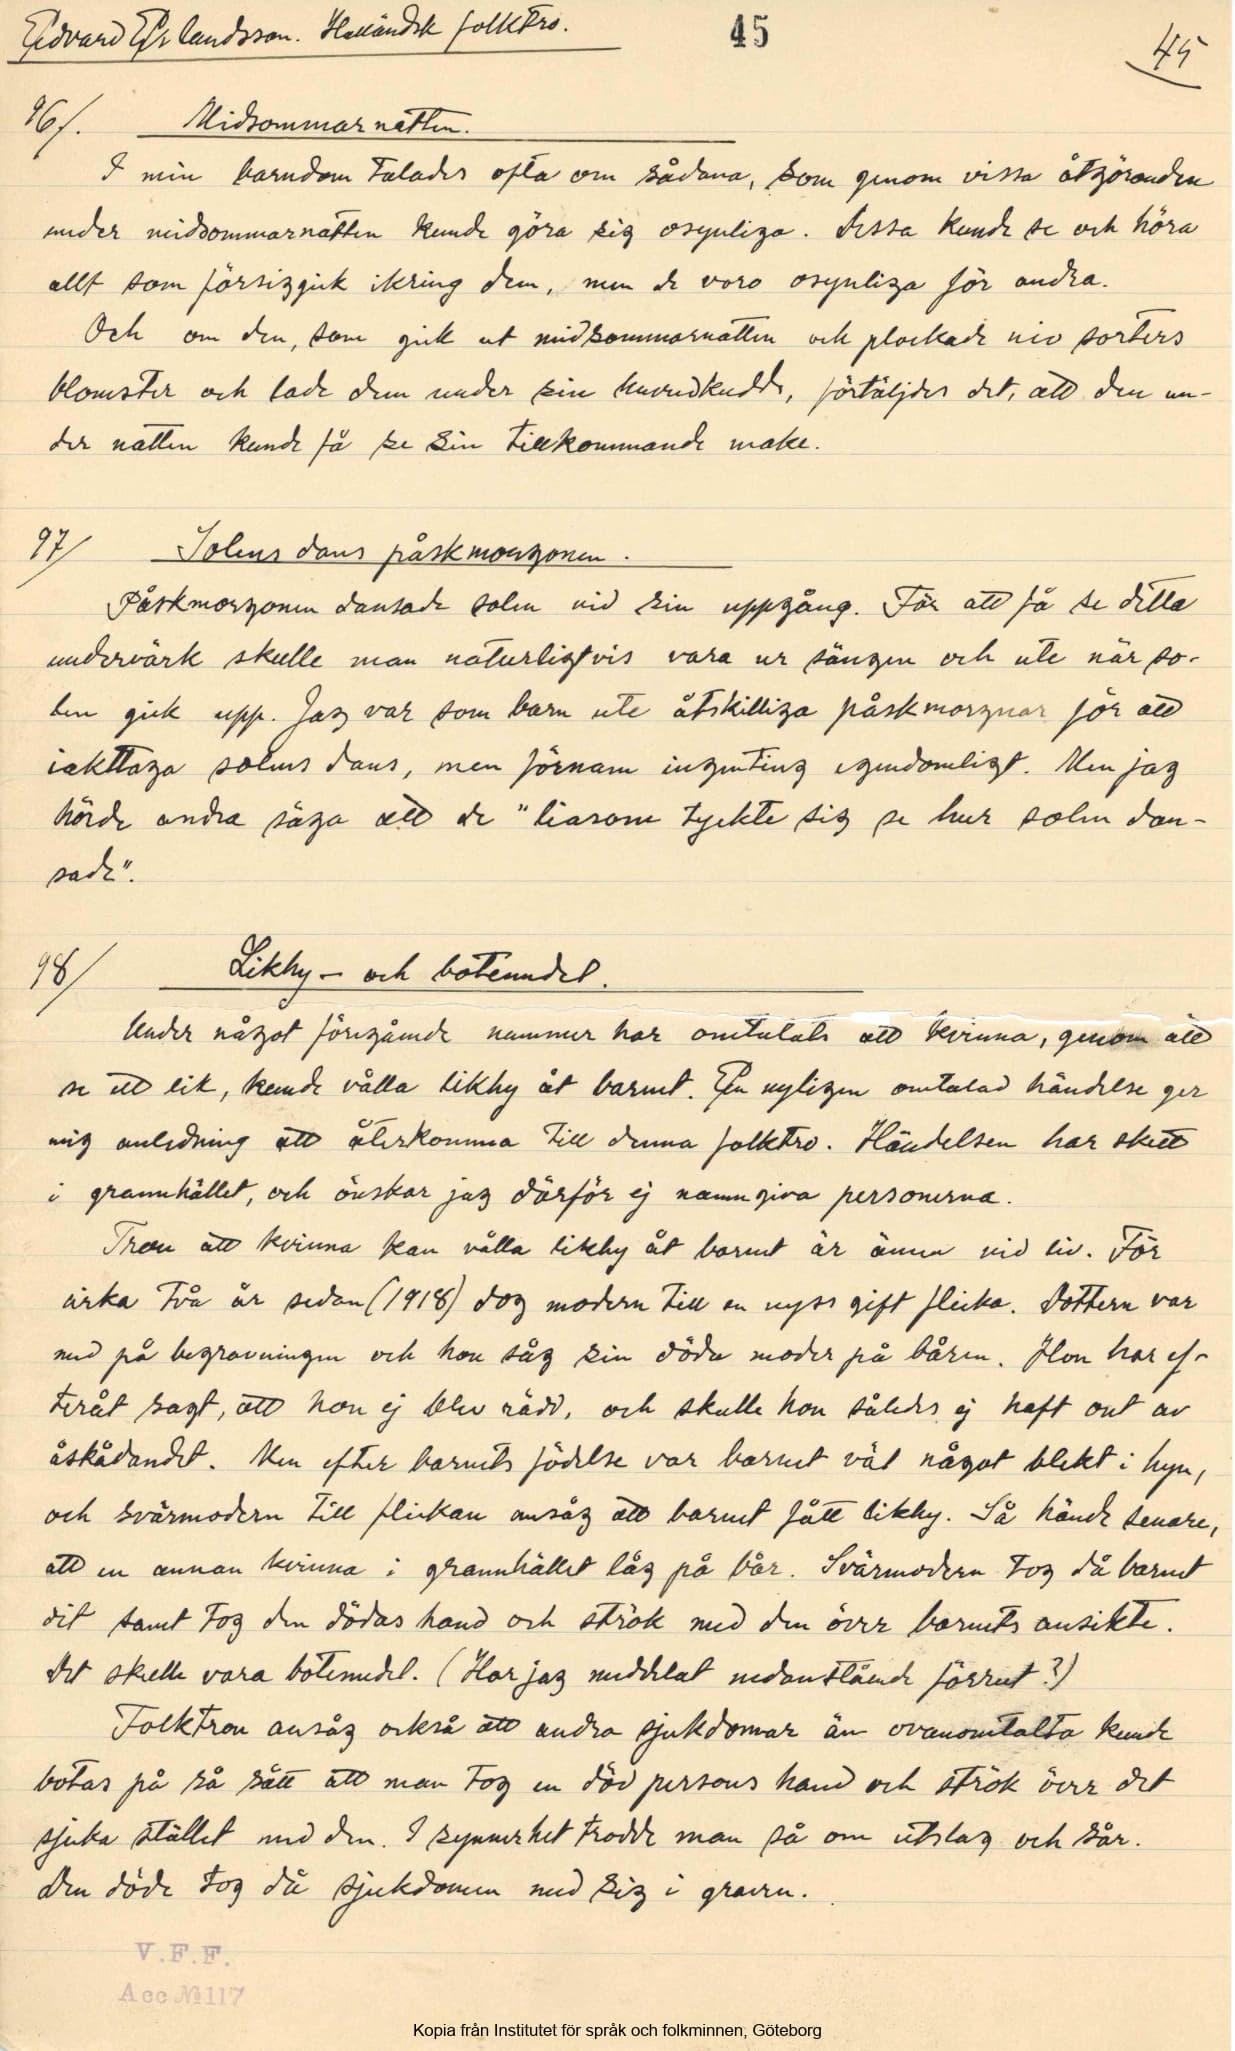 Edvard Erlandsson. Halländsk folktro.
45
45
96/. Midsommarnatten.
I min barndom talades ofta om sådana, som genom vissa åtgöranden
under midsommarnatten kunde göra sig osynliga. Dessa kunde se och höra
allt som försiggick ikring dem, men de voro osynliga för andra.
Och om den, som gick ut midsommarnatten och plockade nio sorters
blomster och lade dem under sin huvudkudde, förtäljdes det, att den un-
der natten kunde få se sin tillkommande make.
97/ Solens dans påskmorgonen.
Påskmorgonen dansade solen vid sin uppgång. För att få se detta
undervärk skulle man naturligtvis vara ur sängen och ute när so-
len gick upp. Jag var som barn ute åtskilliga påskmorgnar för att
iakttaga solens dans, men förnam ingenting egendomligt. Men jag
hörde andra säga att de "liasom tyckte sig se hur solen dan-
sade".
98/ Likhy- och botemedel.
Under något föregående nummer har omtalats att kvinna, genom att
se ett lik, kunde vålla likhy åt barnet. En nyligen omtalad händelse ger
mig anledning att återkomma till denna folktro. Händelsen har skett
i grannhället, och önskar jag därför ej namngiva personerna.
Tron att kvinna kan vålla likhy åt barnet är ännu vid liv. För
cirka två år sedan (1918) dog modern till en nyss gift flicka. Dottern var
med på begravningen och hon såg sin döda moder på båren. Hon har ef-
teråt sagt, att hon ej blev rädd, och skulle hon således ej haft ont av
åskådandet. Men efter barnets födelse var barnet väl något blekt i hyn,
och svärmodern till flickan ansåg att barnet fått likhy. Så hände senare,
att en annan kvinna i grannhället låg på bår. Svärmodern tog då barnet
dit samt tog den dödas hand och strök med den över barnets ansikte.
Det skulle vara botemedel. (Har jag meddelat nedanstående förrut?)
Folktron ansåg också att andra sjukdomar än ovanomtalta kunde
botas på så sätt att man tog en död persons hand och strök över det
sjuka stället med den. I synnerhet trodde man så om utslag och sår.
Den döde tog då sjukdomen med sig i graven.
V.F.F.
Acc №117
Kopia från Institutet för språk och folkminnen, Göteborg